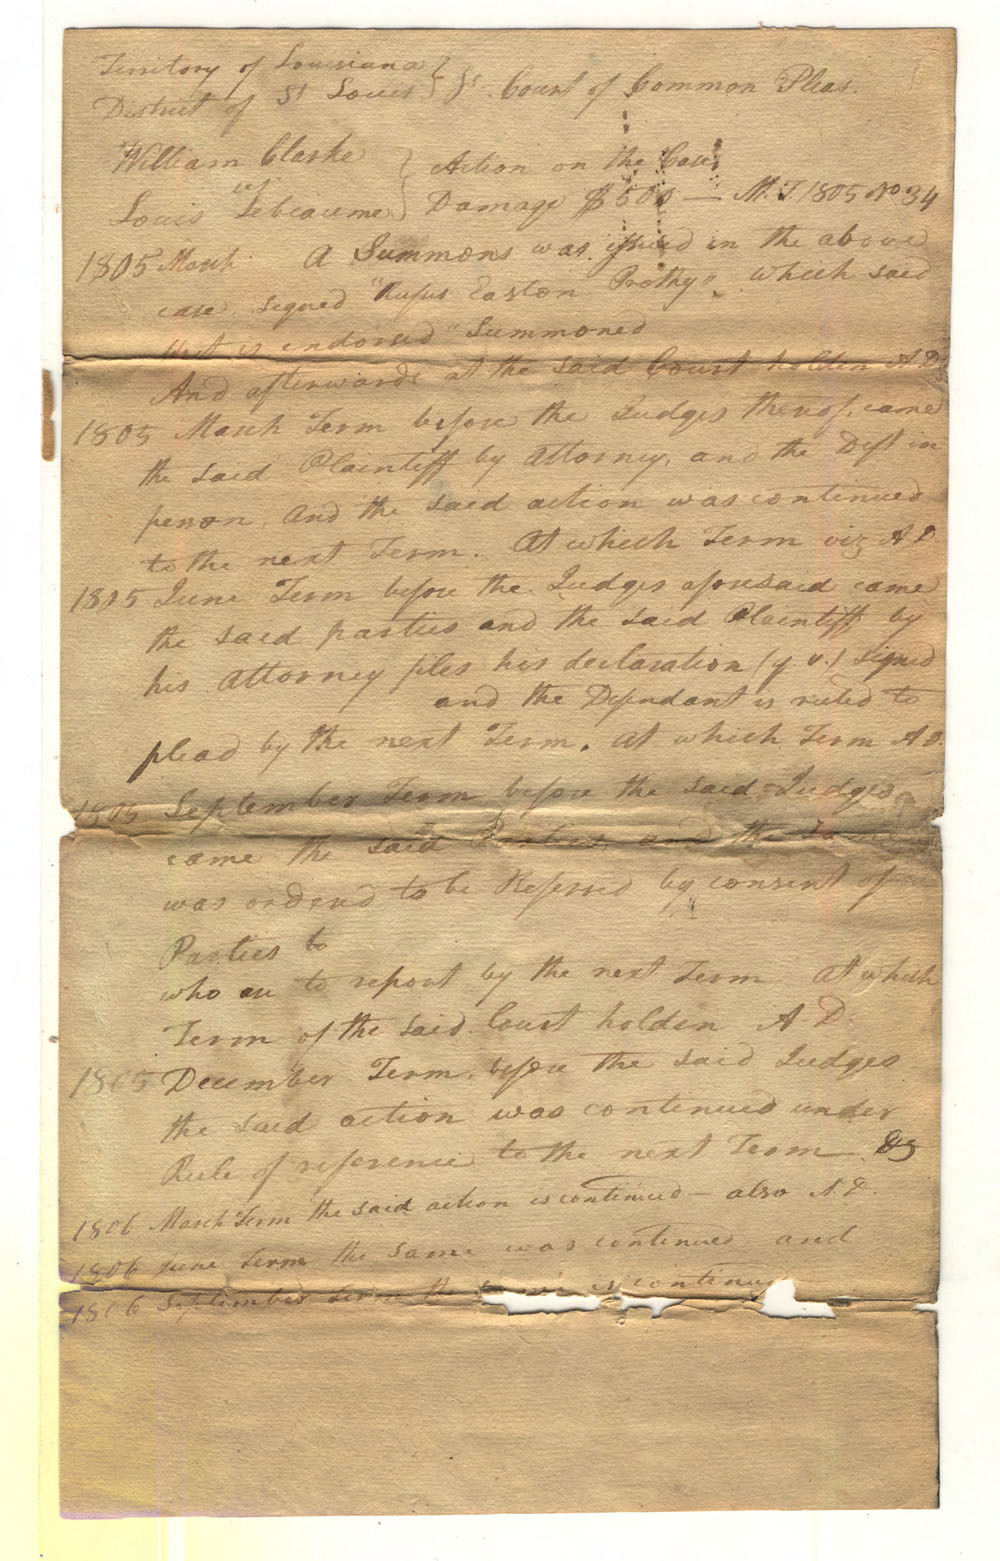 Territory of Louisiana } Ss. Court of Common Pleas.
District of St Louis
William Clarke } Action on the Case
vs
Louis Lebeaume } Damage $500 — M. T. 1805 No 34
1805 March A Summons was issued in the above
case signed "Rufus Easton Prothy", which said
Writ is endorsed "Summoned
And afterwards at the said Court holden A D.
1805 March Term before the Judges thereof, came
the said Plaintiff by attorney, and the Deft in
person, and the said action was continued
to the next Term. At which Term viz A D.
1805 June Term before the Judges aforesaid came
the said parties and the said Plaintiff by
his attorney files his declaration (q v.) signed
and the Defendant is ruled to
plead by the next Term. at which Term A D.
1805 September Term before the said Judges
came the said Parties, and the same
was ordered to be Referred by consent of
Parties to
who are to report by the next Term At which
Term of the said Court holden A D.
1805 December Term, before the said Judges
the said action was continued under
Rule of reference to the next Term.
1806 March Term the said action is continued — also A. D.
1806 June Term the same was continued and
1806 September Term the is continued